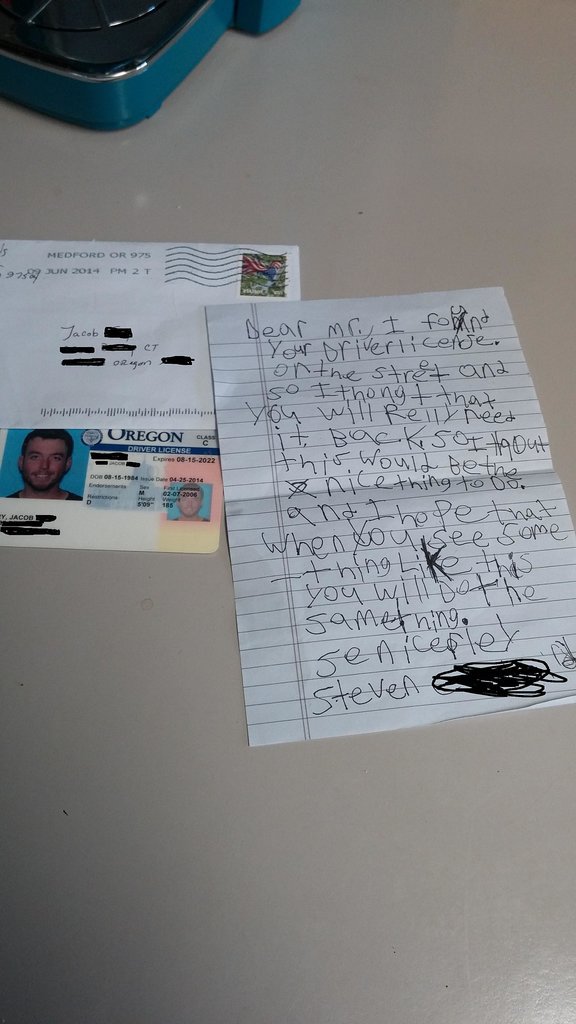 MEDFORD OR 975
09 JUN 2014 PM 2 T
Jacob
CT
oregon
OREGON
CLASS
C
DRIVER LICENSE
Expires 08-15-2022
JACOB
DOB 08-15-1984 Issue Date 04-25-2014
Endorsements Sex First Licensed
M 02-07-2006
Restrictions Height Weight
D 5'09" 185
Y, JACOB
Dear mr, I found
Your Driverlicense.
on the street and
so I thongt that
you will Relly need
it Back so I thout
this would be the
nice thing to Do.
and I hope that
when you see some
thing Like this
you will Do the
same thing.
senicerley
Steven